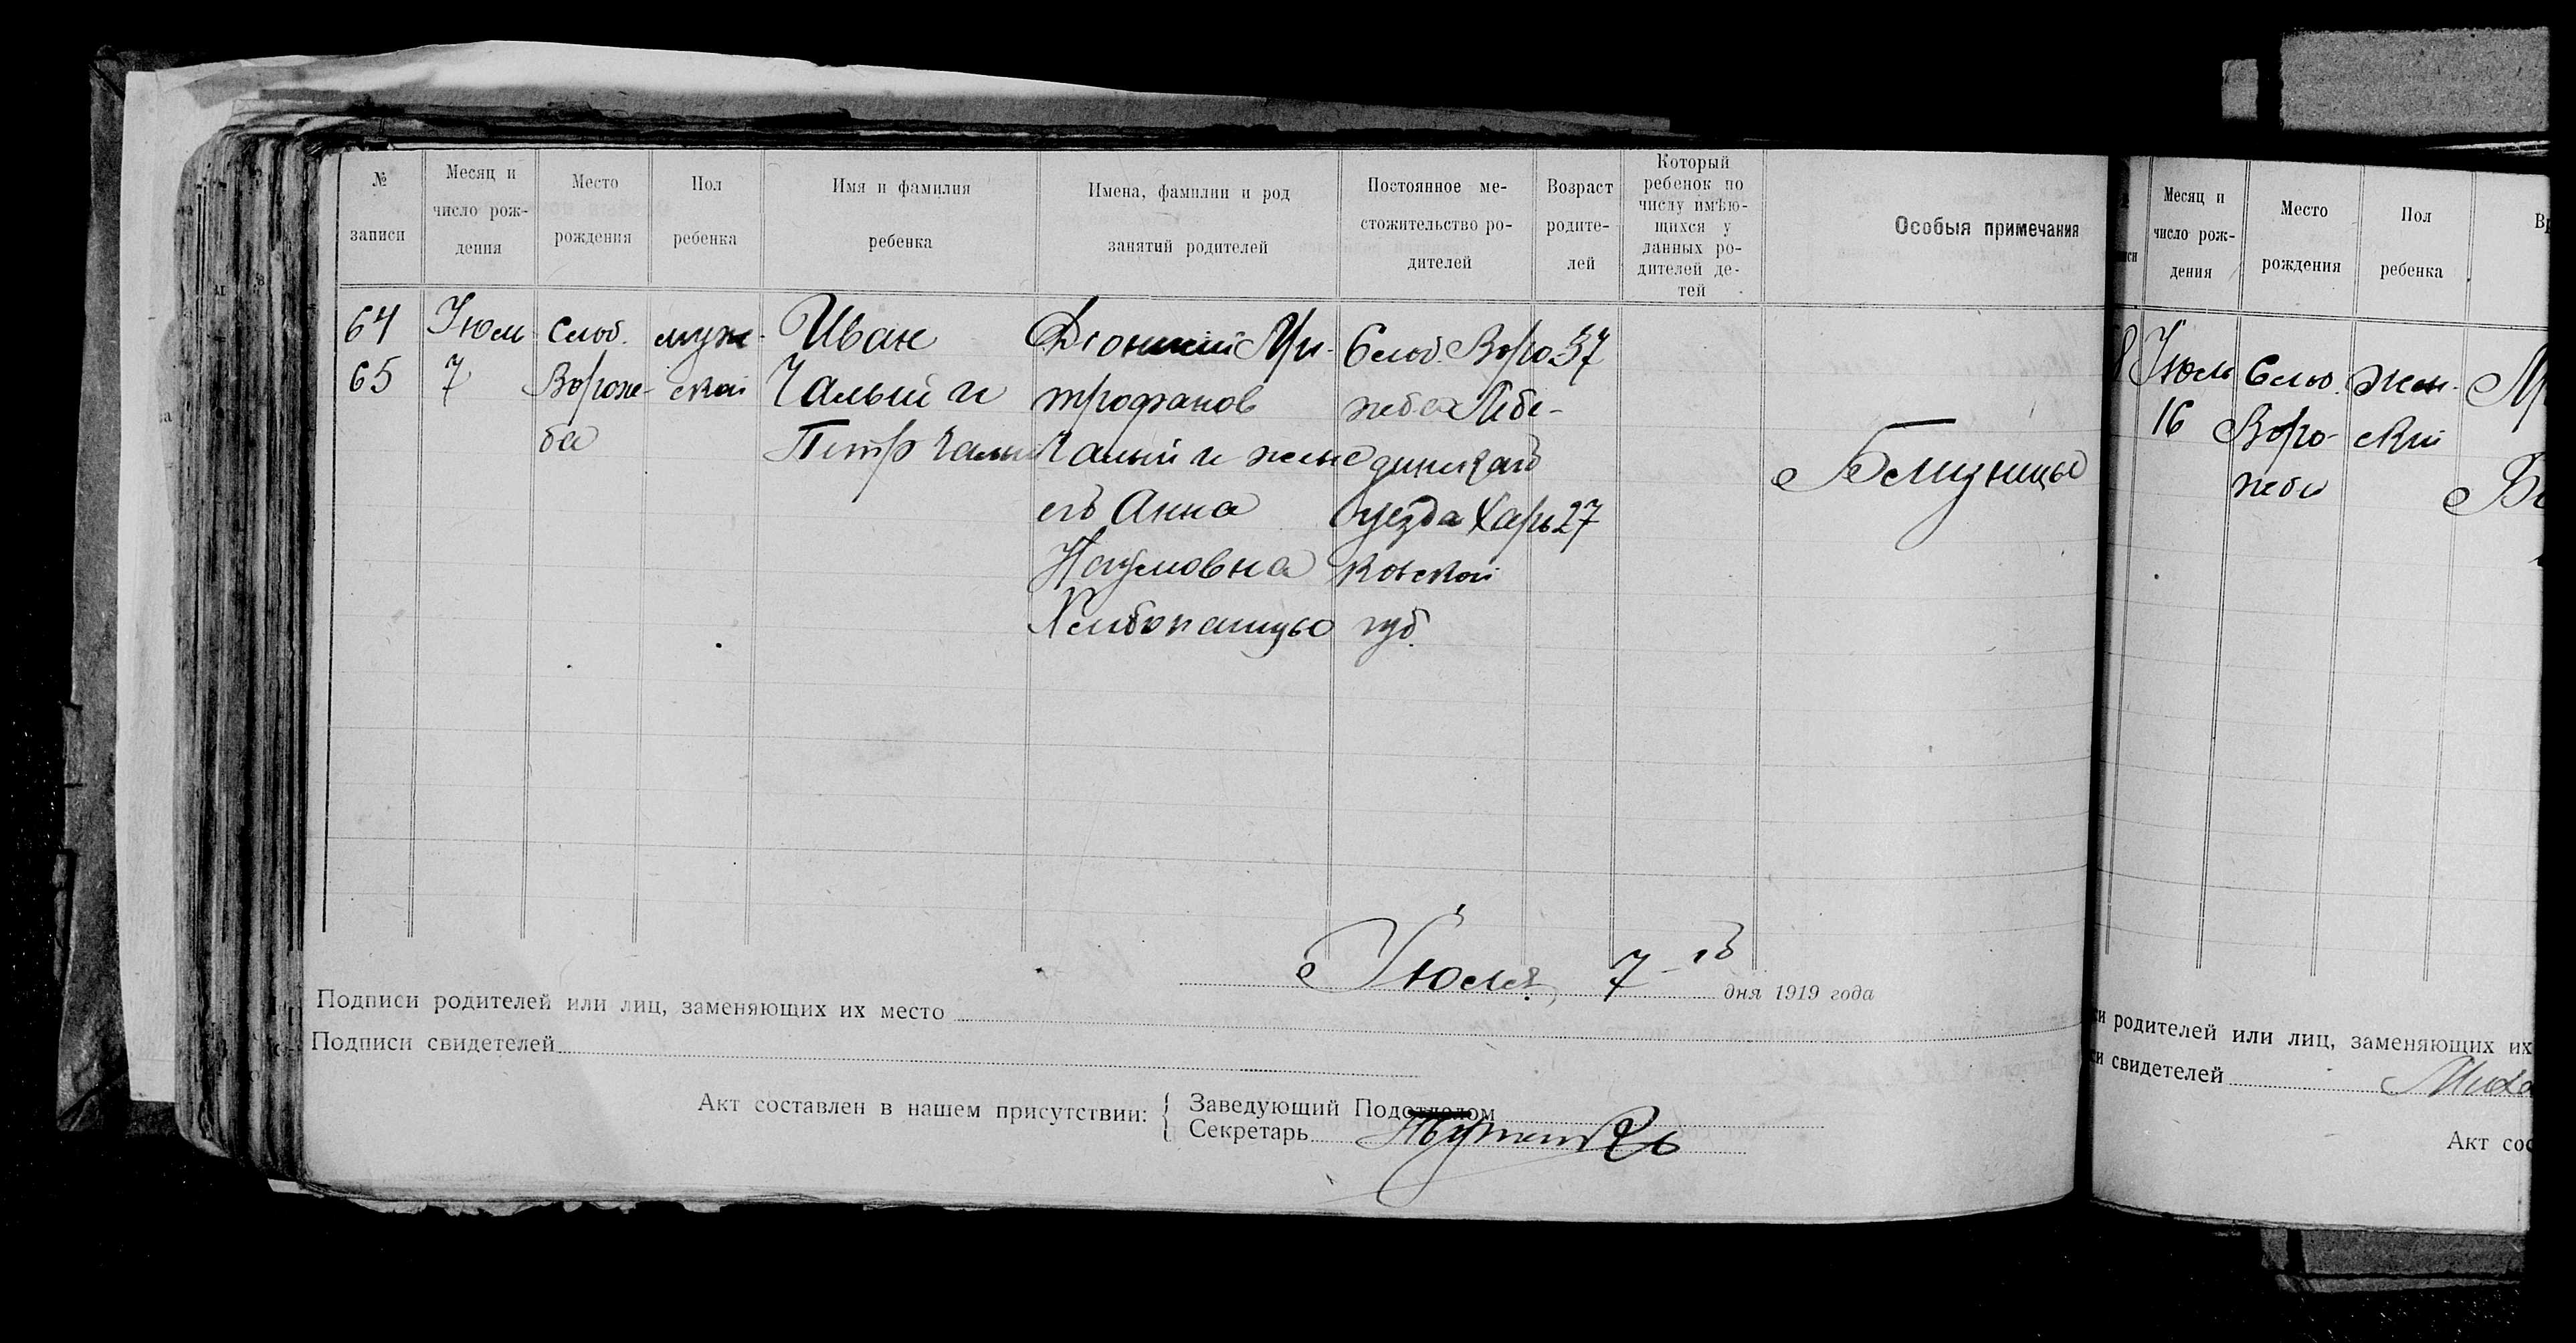 № записи
Месяц и число рождения
Место рождения
Пол ребенка
Имя и фамилия ребенка
Имена, фамилии и род занятий родителей
Постоянное ме-
стожительство ро-
дителей
Возраст
родите-
лей
Который
ребенок по
числу имѣю-
щихся у
данных ро-
дителей де-
тей
Особыя примечания
64
65
Июл
7
Слоб.
Вороже-
ба
муж-
ской
Иван
Чалый и
Петр Чалый
Дионисий Ми-
трофанов
Чалый и жена
его Анна
Наумовна
Хлебопашцы
Слоб. Воро-
жеба Лебе-
динскаго
уезда Харь-
ковской
губ.
37
27
Близницы
Июля, 7-го дня 1919 года
Подписи родителей или лиц, заменяющих их место
Подписи свидетелей
Акт составлен в нашем присутствии:
Заведующий Подотделом
Секретарь
Месяц и
число рож-
дения
Место
рождения
Пол
ребенка
8
Июль
16
Слоб.
Воро-
жеба
жен-
ский
и родителей или лиц, заменяющих их
и свидетелей
Акт сос